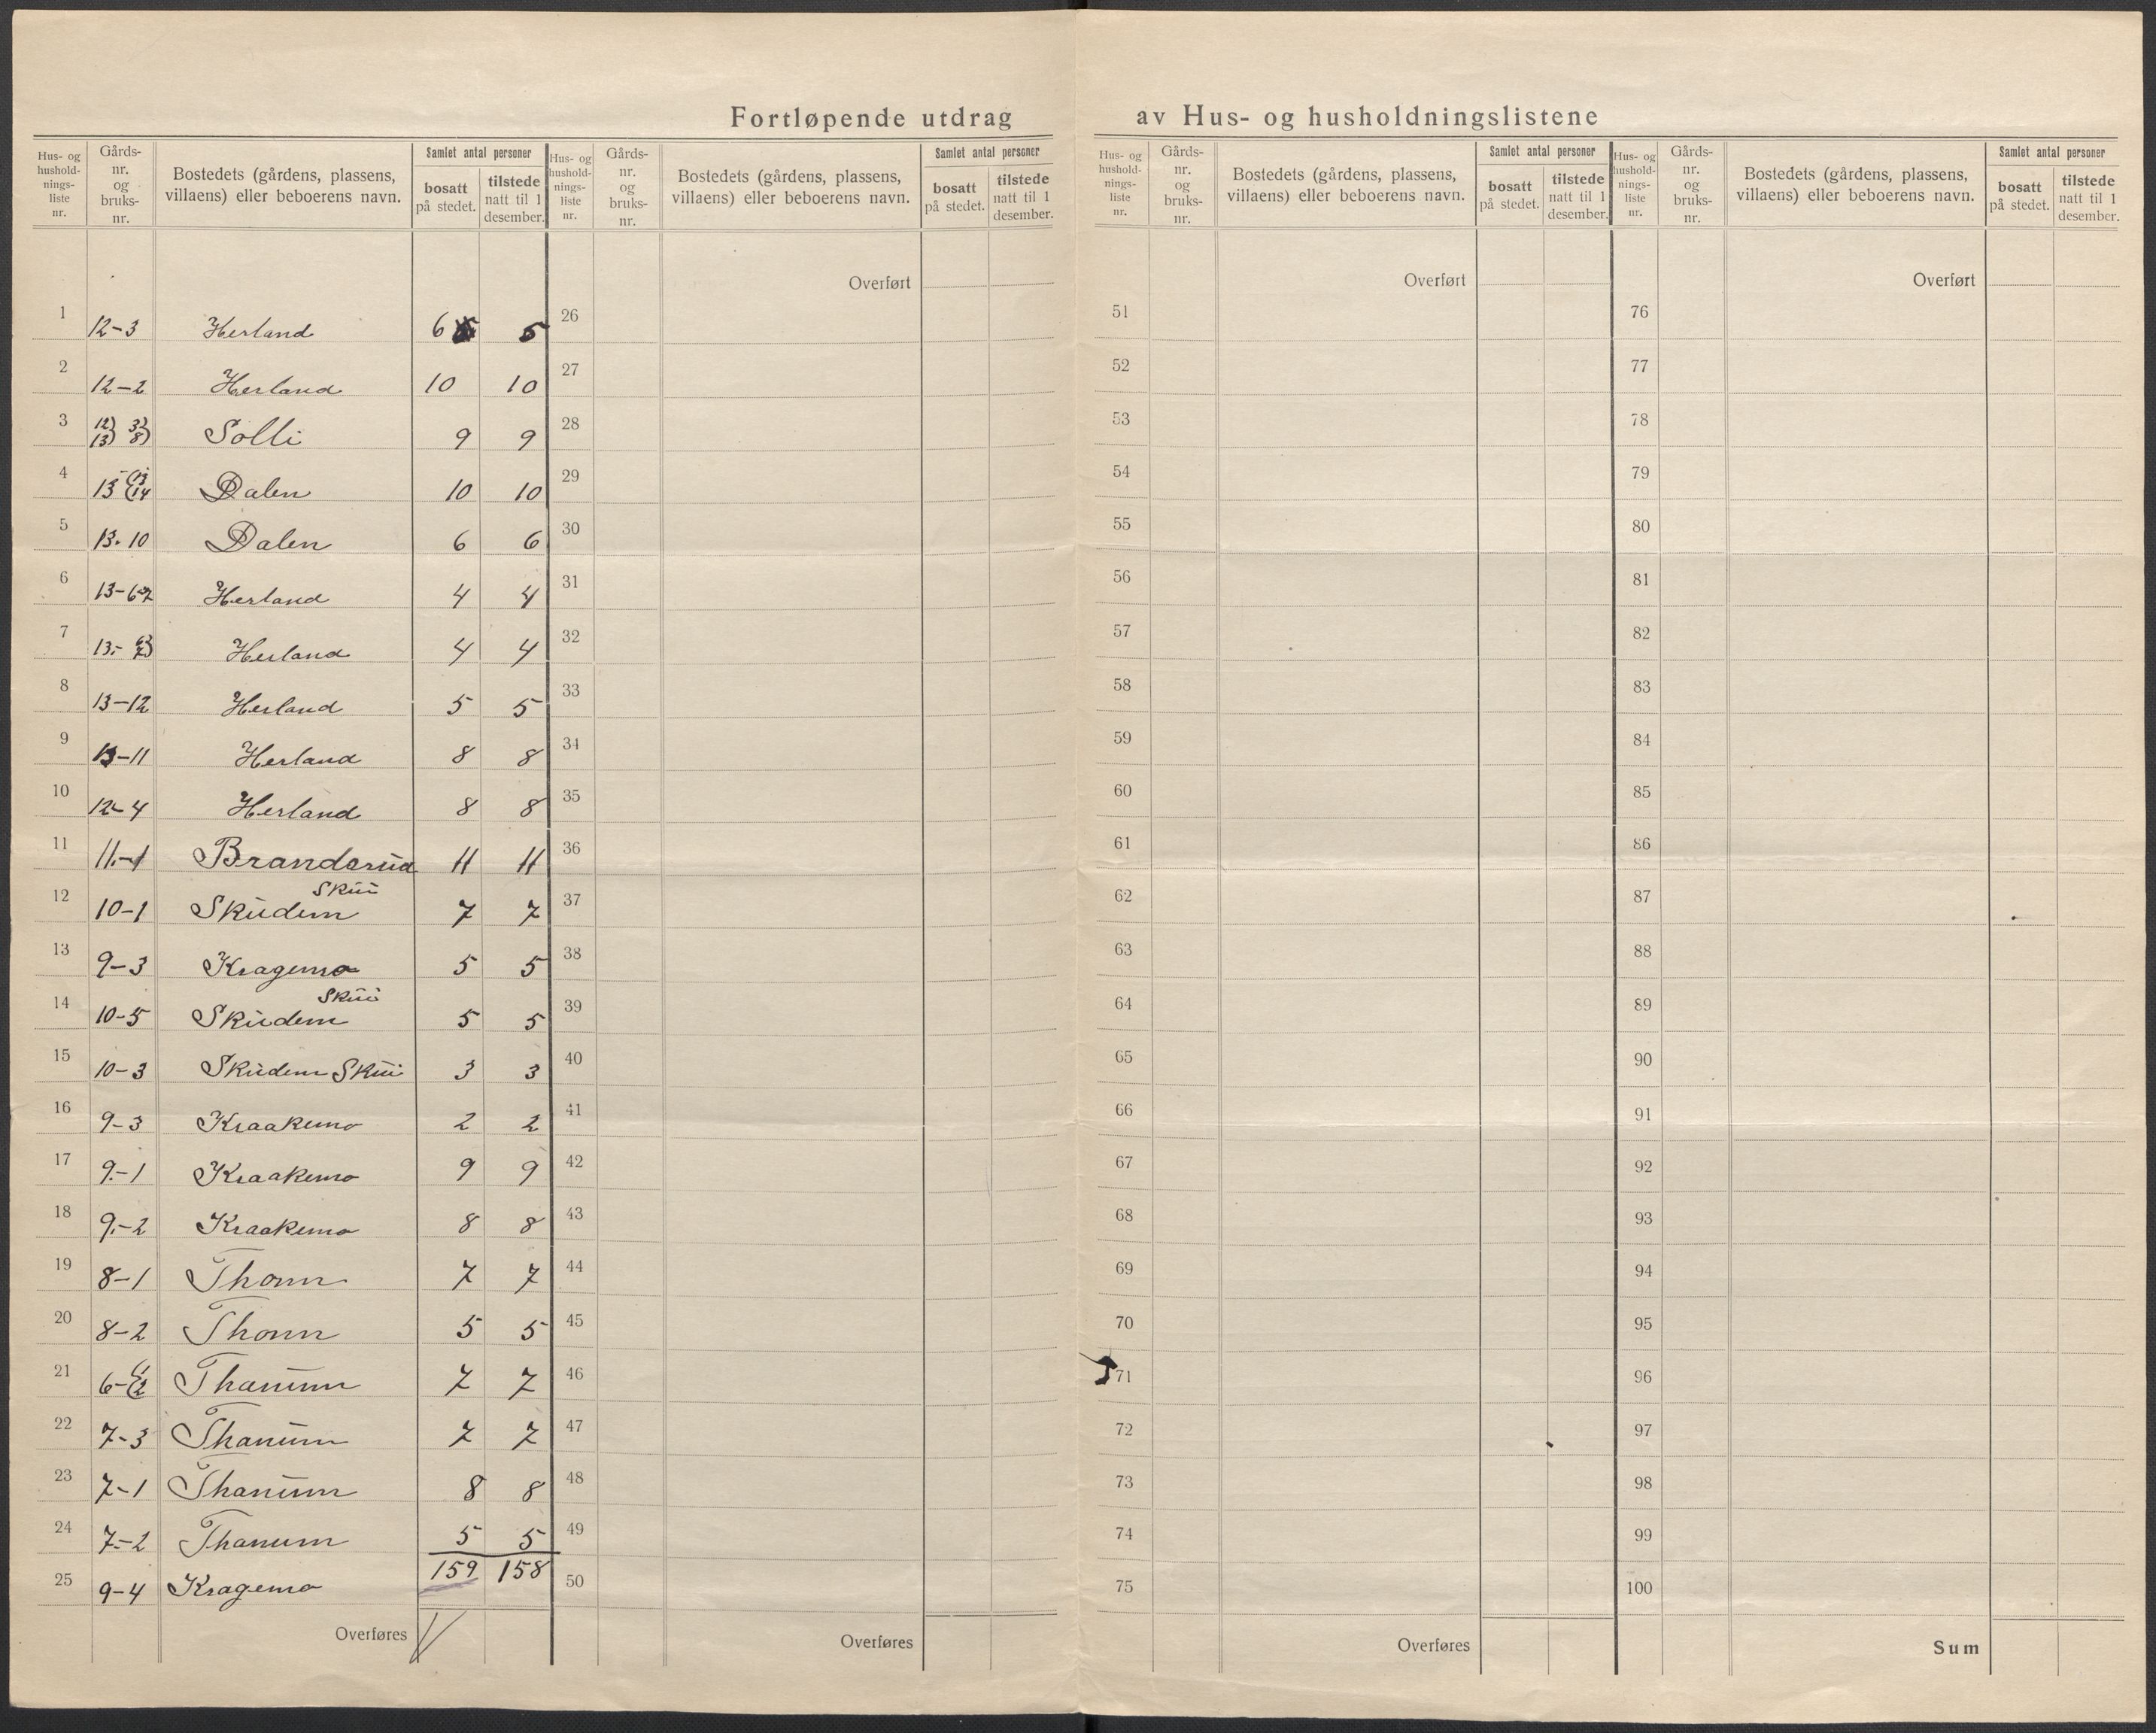 Fortløpende utdrag av Hus- og husholdningslistene
Hus- og hushold- nings- liste nr. Gårds- nr. og bruks- nr. Bostedets (gårdens, plassens, villaens) eller beboerens navn. Samlet antal personer bosatt på stedet. tilstede natt til 1 desember.
Hus- og hushold- nings- liste nr. Gårds- nr. og bruks- nr. Bostedets (gårdens, plassens, villaens) eller beboerens navn. Samlet antal personer bosatt på stedet. tilstede natt til 1 desember.
Hus- og hushold- nings- liste nr. Gårds- nr. og bruks- nr. Bostedets (gårdens, plassens, villaens) eller beboerens navn. Samlet antal personer bosatt på stedet. tilstede natt til 1 desember.
Hus- og hushold- nings- liste nr. Gårds- nr. og bruks- nr. Bostedets (gårdens, plassens, villaens) eller beboerens navn. Samlet antal personer bosatt på stedet. tilstede natt til 1 desember.
Overført Overført Overført
1 12-3 Herland 6 5 26 51 76
2 12-2 Herland 10 10 27 52 77
3 12) 3) 13) 8) Solli 9 9 28 53 78
4 13 (13 (14 Dalen 10 10 29 54 79
5 13-10 Dalen 6 6 30 55 80
6 13-6-7 Herland 4 4 31 56 81
7 13- Herland 4 4 32 57 82
8 13-12 Herland 5 5 33 58 83
9 13-11 Herland 8 8 34 59 84
10 12-4 Herland 8 8 35 60 85
11 11-1 Brandsrud 11 11 36 61 86
12 10-1 Skudem Skui 7 7 37 62 87
13 9-3 Kragemo 5 5 38 63 88
14 10-5 Skudem Skui 5 5 39 64 89
15 10-3 Skudem Skui 3 3 40 65 90
16 9-3 Kraakemo 2 2 41 66 91
17 9-1 Kraakemo 9 9 42 67 92
18 9-2 Kraakemo 8 8 43 68 93
19 8-1 Thom 7 7 44 69 94
20 8-2 Thom 5 5 45 70 95
21 6-(1 (2 Thanum 7 7 46 71 96
22 7-3 Thanum 7 7 47 72 97
23 7-1 Thanum 8 8 48 73 98
24 7-2 Thanum 5 5 49 74 99
25 9-4 Kragemo 159 158 50 75 100
Overføres Overføres Overføres Sum